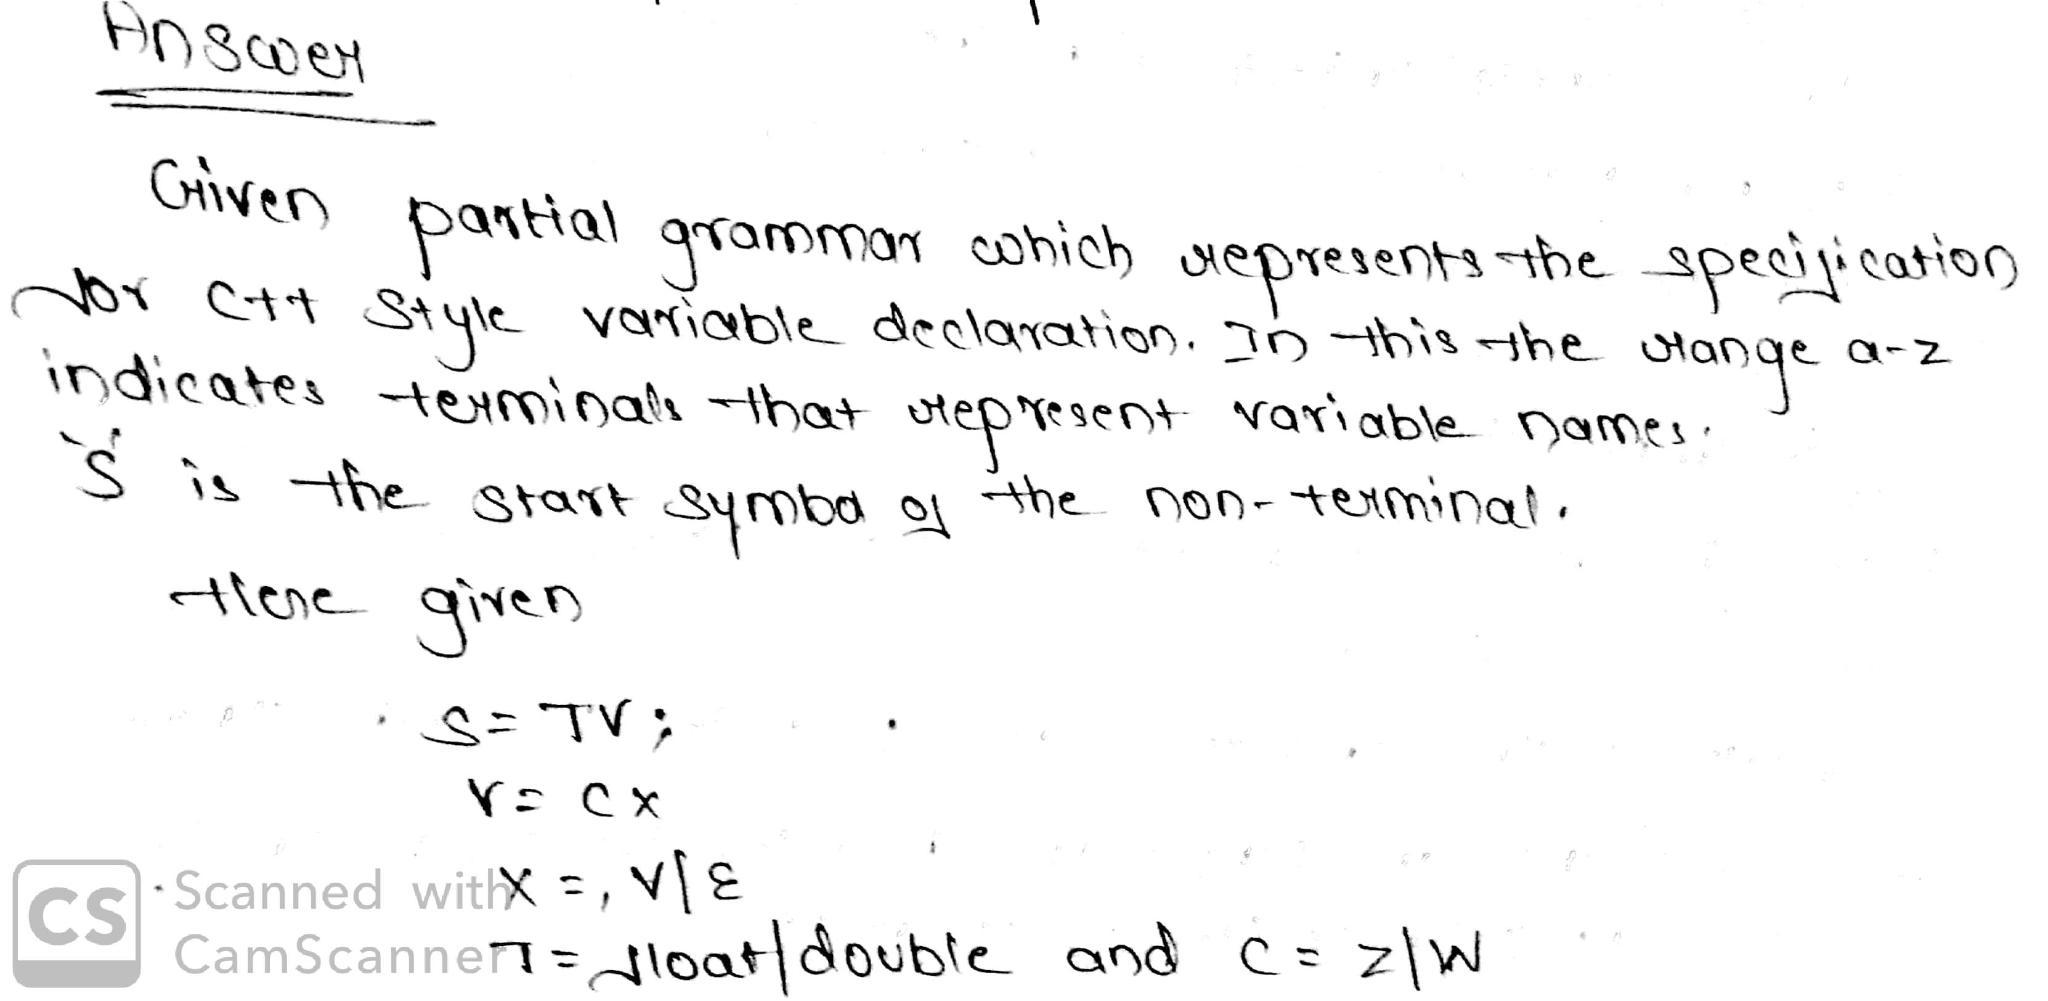 Answer
Given partial grammar which represents the specification
for C++ style variable declaration. In this the range a-z
indicates terminals that represent variable names.
'S' is the start symbol of the non-terminal.
Here given
S = TV;
V = CX
X = , V | ε
T = float | double and C = z | w
CS Scanned with
CamScanner